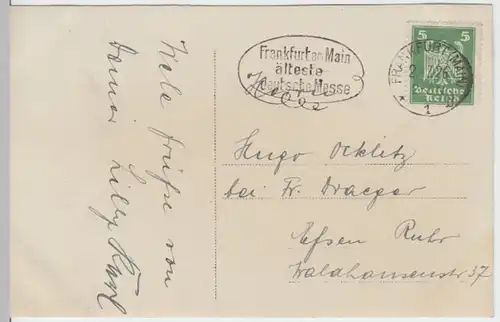 Viele Grüße von
Deiner Lilly Karl
Frankfurt am Main
älteste
deutsche Messe
FRANKFURT (MAIN)
1
5 5
Deutsches
Reich
Hugo Ocklitz
bei Fr. Draeger
Essen Ruhr
Waldhausenstr 37